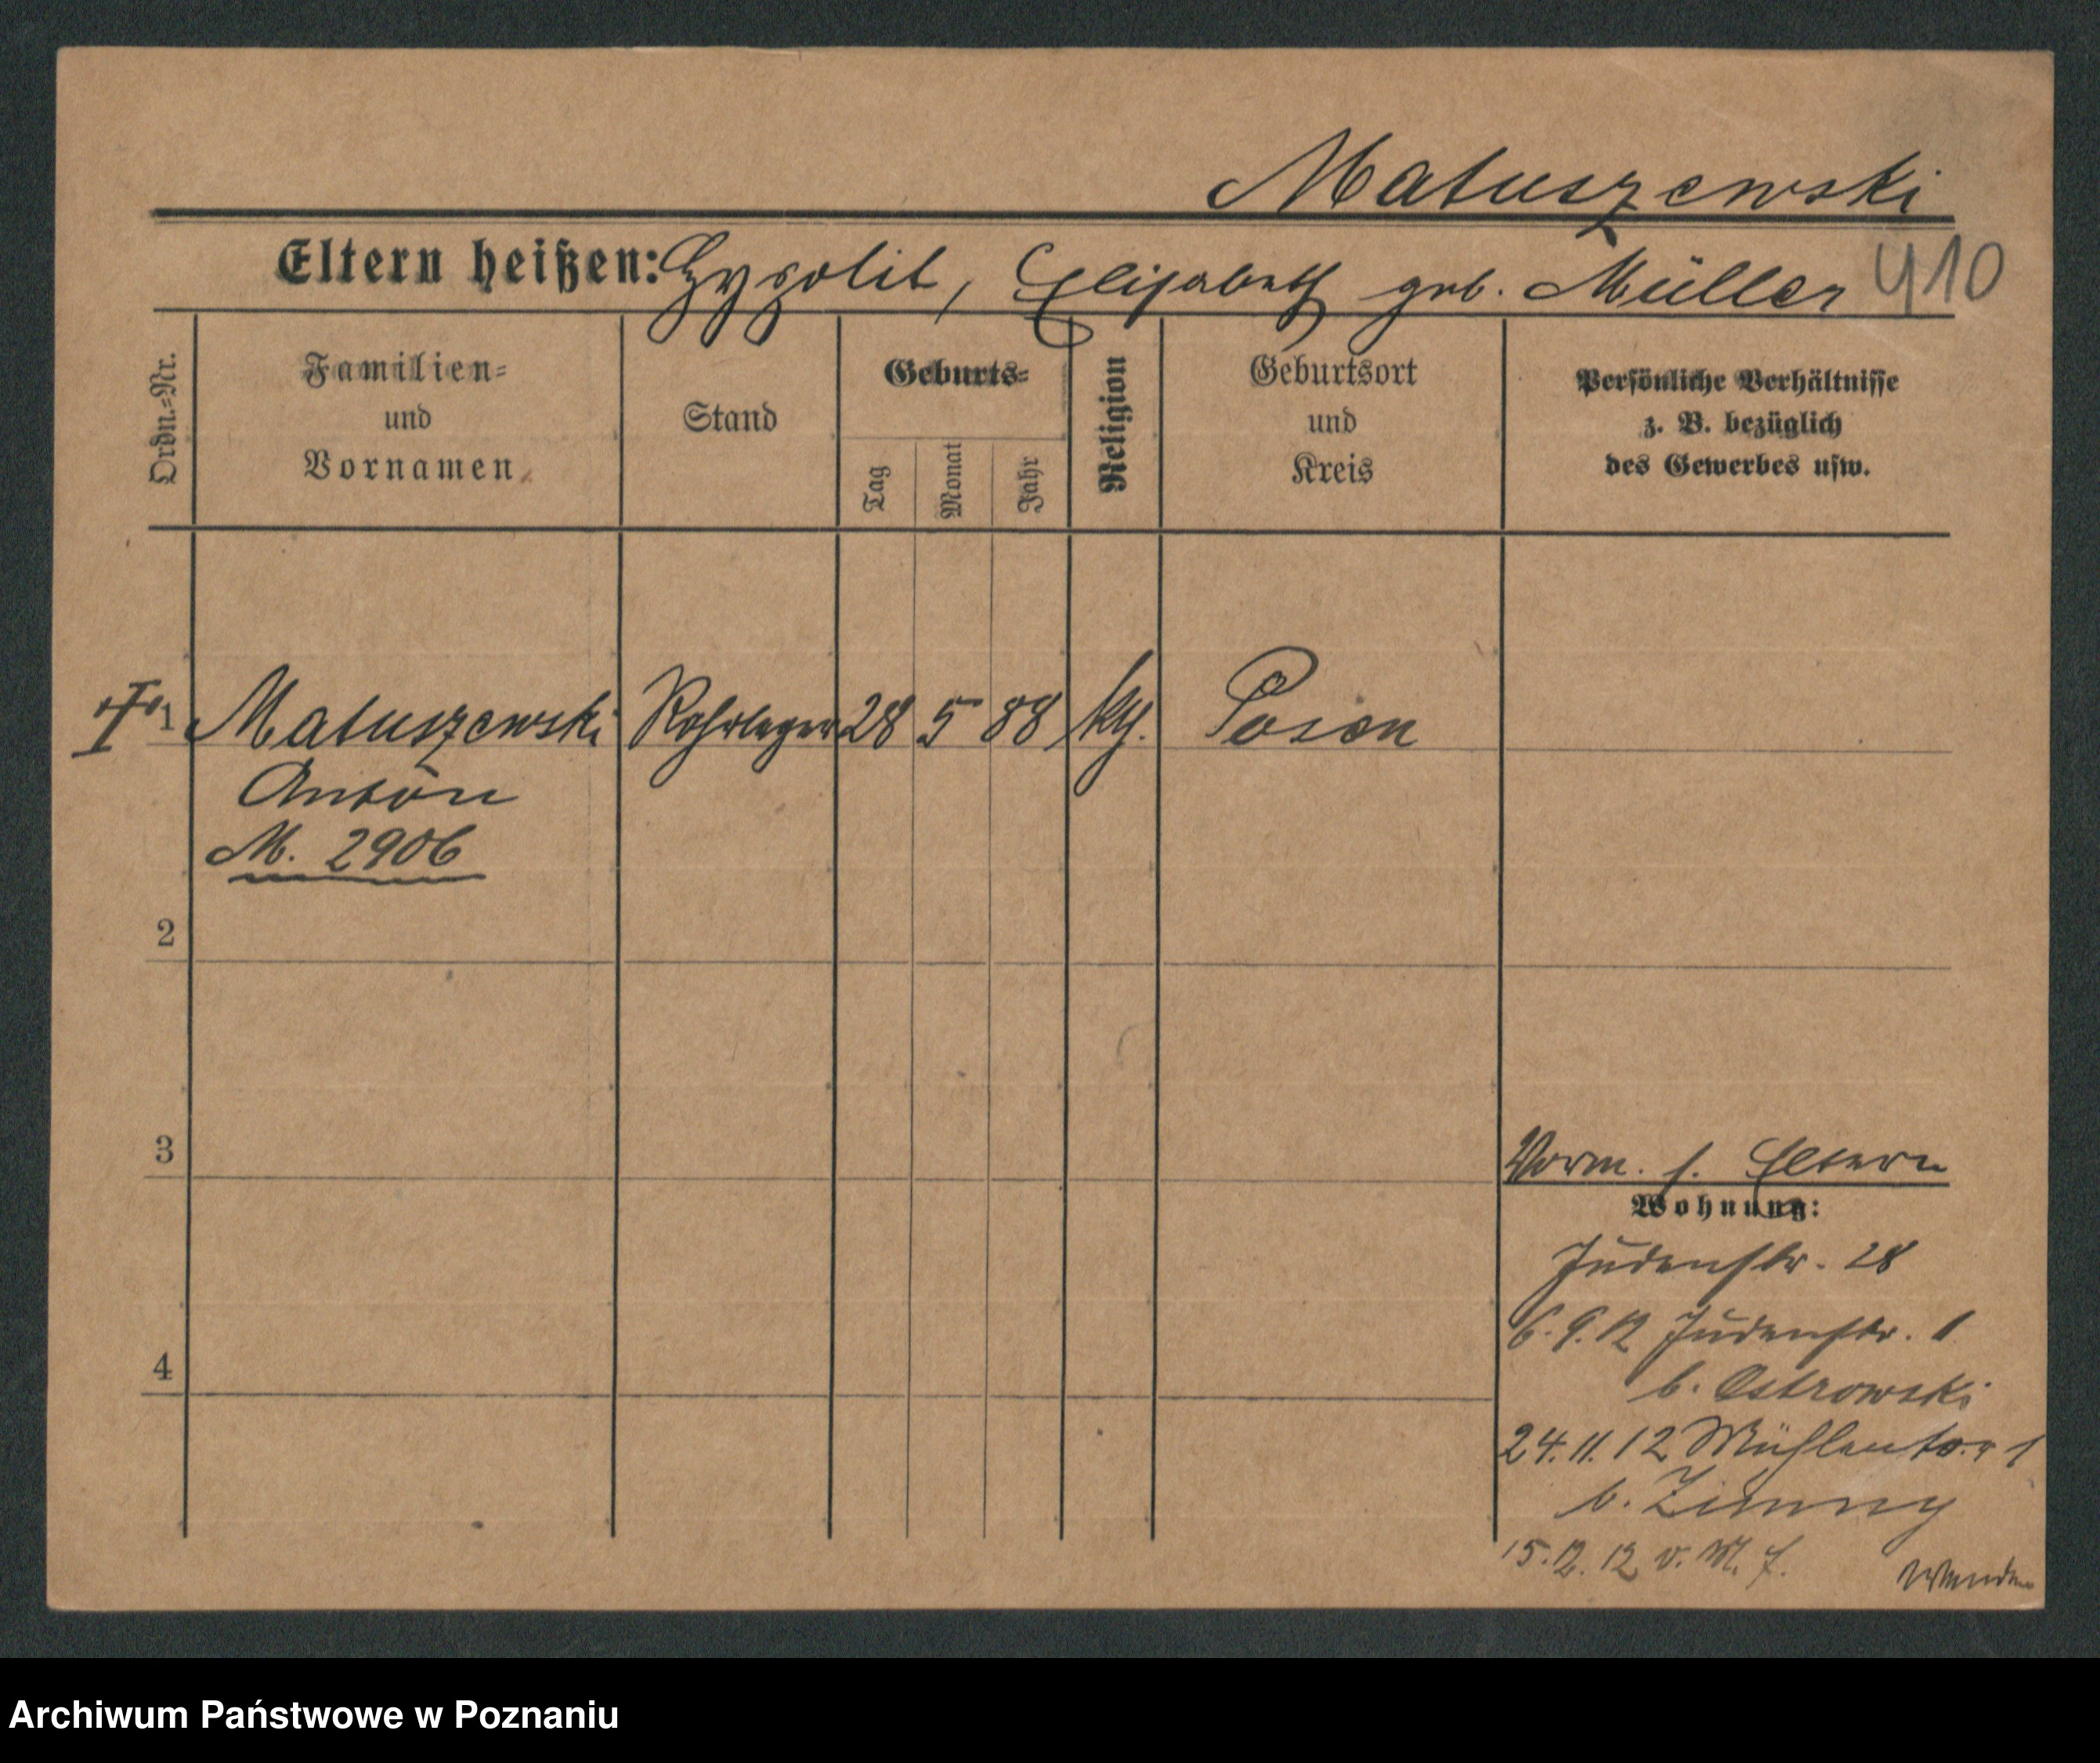 Matuszewski
Eltern heißen: Hypolit, Elisabeth geb. Müller
410
Ordn.=Nr.
Familien=
und
Vornamen
Stand
Geburts=
Tag
Monat
Jahr
Religion
Geburtsort
und
Kreis
Persönliche Verhältnisse
z. B. bezüglich
des Gewerbes usw.
1 Matuszewski Rohrleger 28 5 88 kth. Posen
Anton
M. 2906
2
3
4
Vorm. s. Eltern
Wohnung:
Judenstr. 28
6.9.12 Judenstr. 1
b. Ostrowski
24.11.12 Mühlentor 1
b. Zimny
15.12.12 v. M.
Wenden
Archiwum Państwowe w Poznaniu